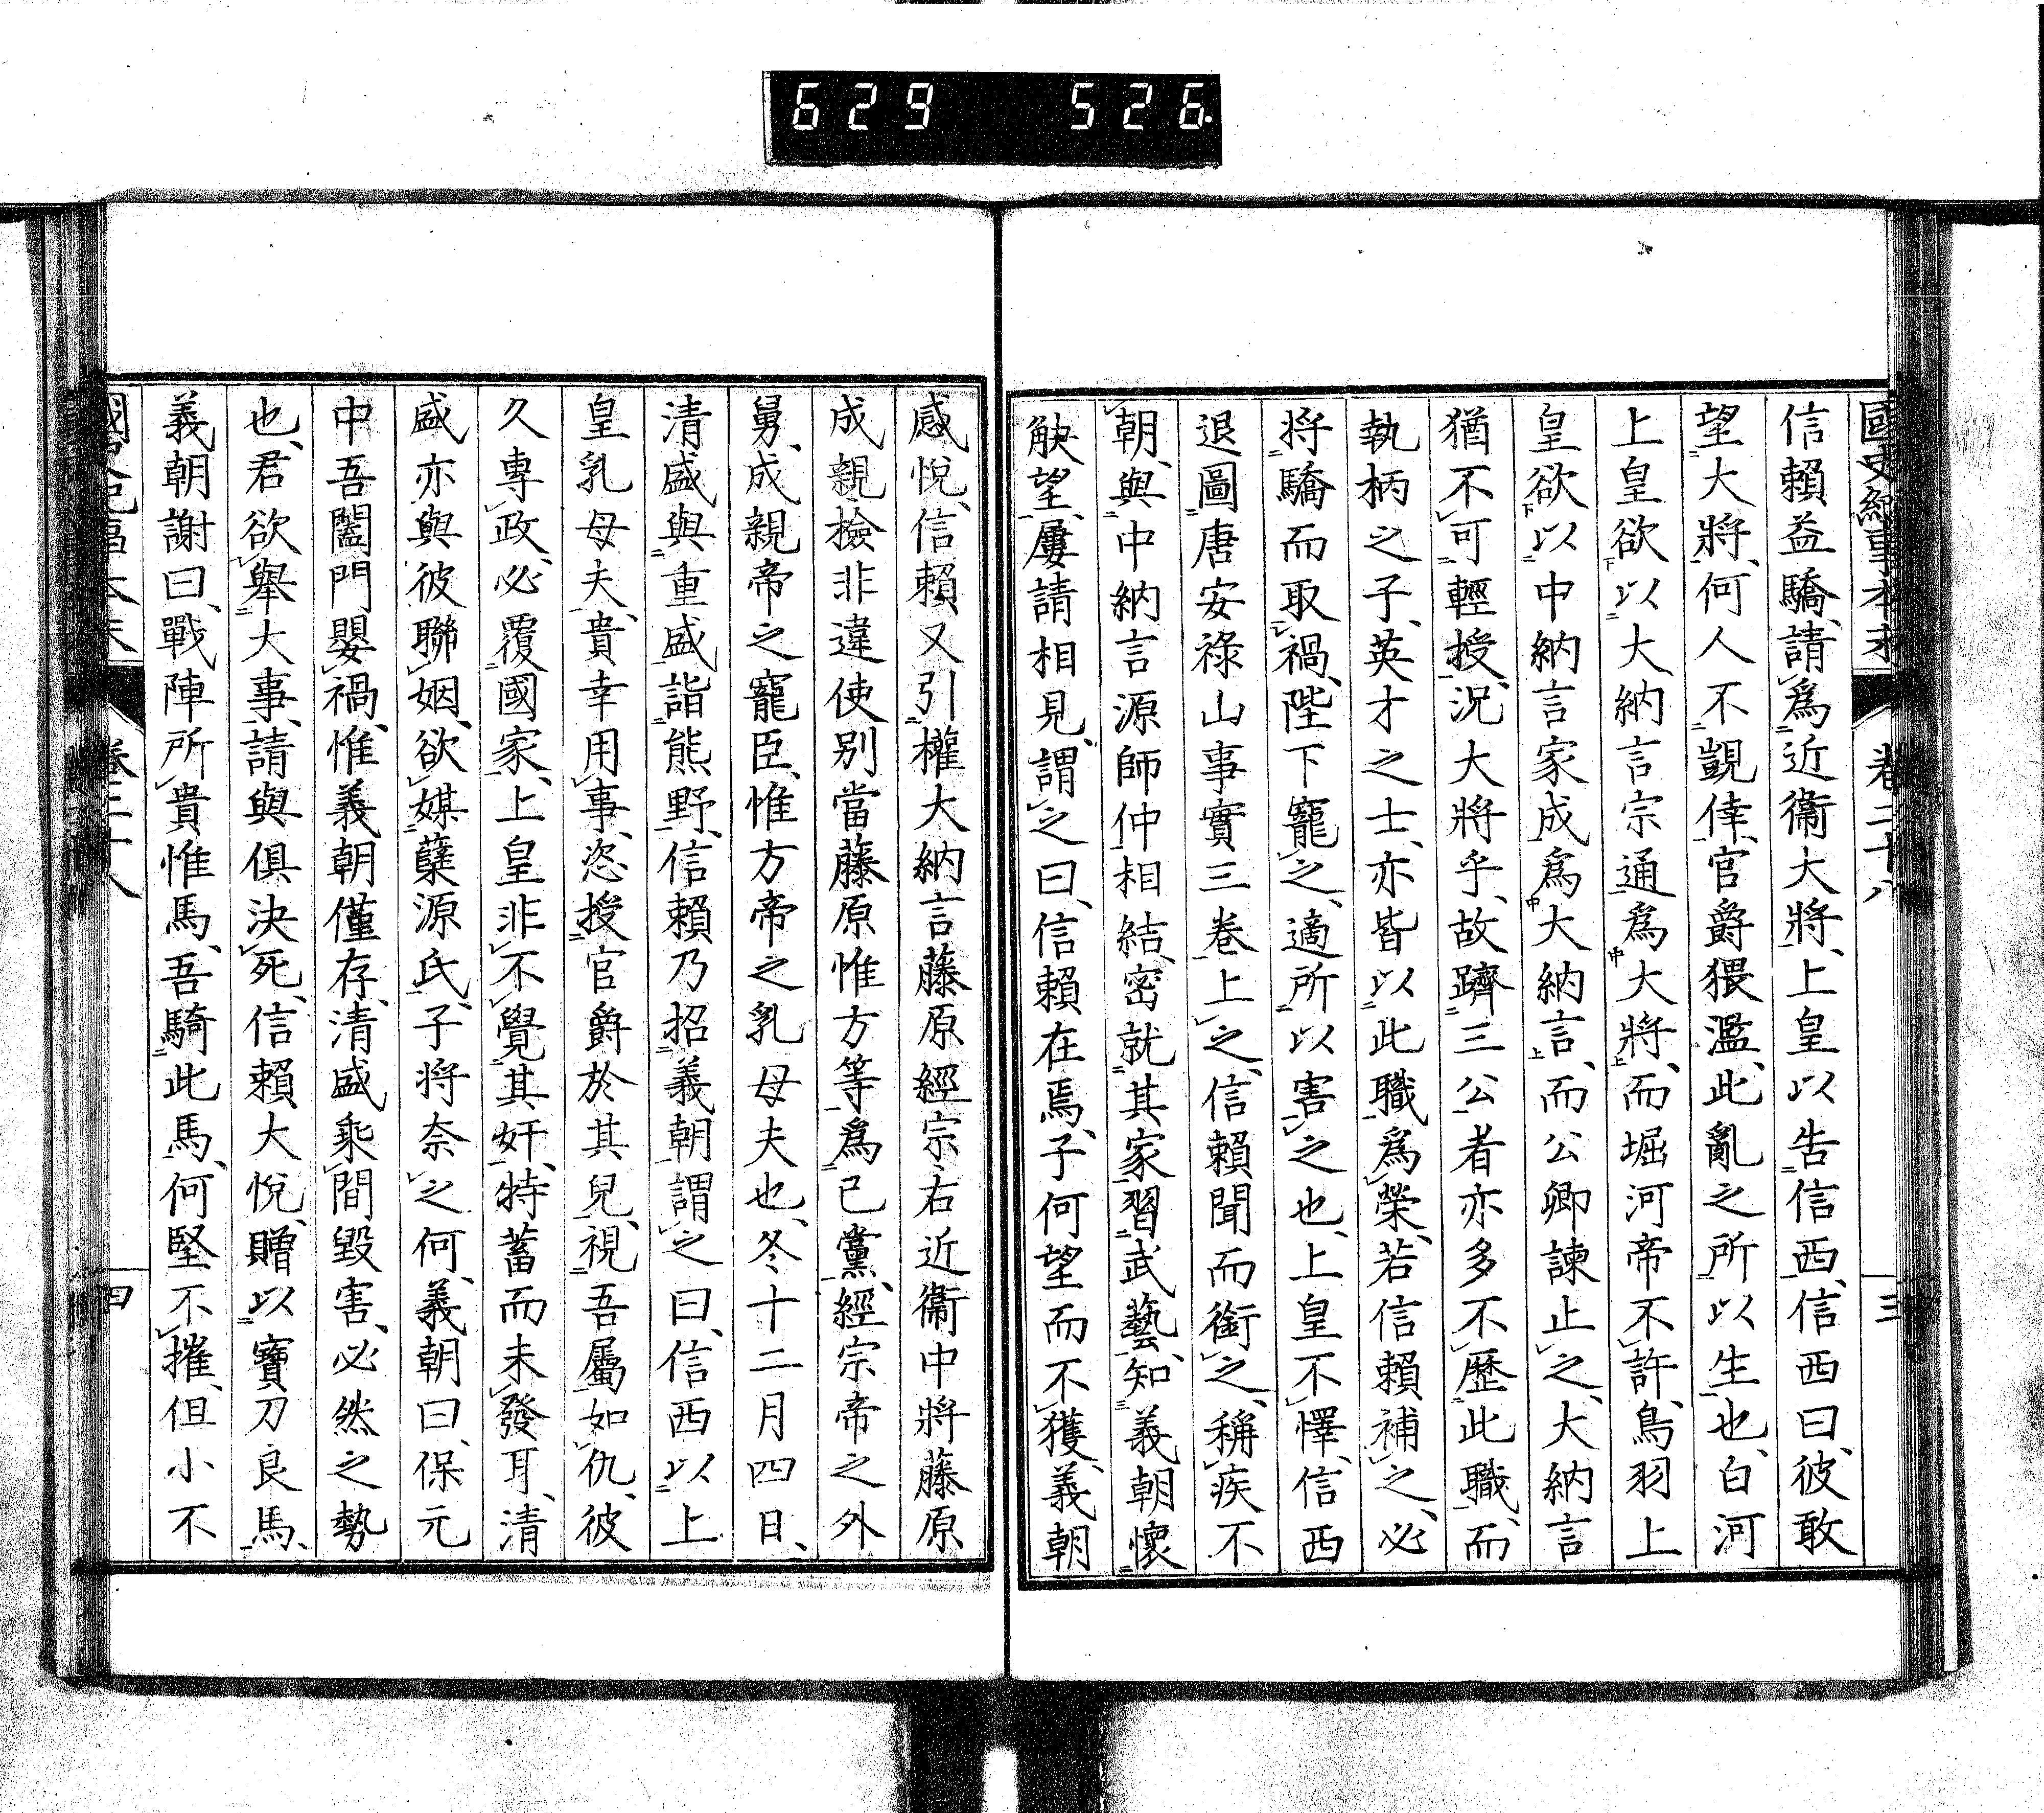 629 526.
國史紀事本末 卷二十八 三
信賴益驕、請爲近衞大將、上皇以告信西、信西曰、彼敢
望大將、何人不覬倖、官爵猥濫、此亂之所以生也、白河
上皇欲以大納言宗通爲大將、而堀河帝不許、鳥羽上
皇欲以中納言家成爲大納言、而公卿諫止之、大納言
猶不可輕授、況大將乎、故躋三公者亦多不歷此職、而
執柄之子、英才之士、亦皆以此職爲榮、若信賴補之、必
將驕而取禍、陛下寵之、適所以害之也、上皇不懌、信西
退圖唐安祿山事實三卷上之、信賴聞而銜之、稱疾不
朝、與中納言源師仲相結、密就其家習武藝、知義朝懷
觖望、屢請相見、謂之曰、信賴在焉、子何望而不獲、義朝
感悅、信賴又引權大納言藤原經宗右近衞中將藤原
成親檢非違使別當藤原惟方等爲己黨、經宗帝之外
舅、成親帝之寵臣、惟方帝之乳母夫也、冬十二月四日、
清盛與重盛詣熊野、信賴乃招義朝謂之曰、信西以上
皇乳母夫、貴幸用事、恣授官爵於其兒、視吾屬如仇、彼
久專政、必覆國家、上皇非不覺其奸、特蓄而未發耳、清
盛亦與彼聯姻、欲媒糵源氏、子將奈之何、義朝曰、保元
中吾闔門嬰禍、惟義朝僅存、清盛乘間毀害、必然之勢
也、君欲舉大事、請與俱決死、信賴大悅、贈以寶刀良馬、
義朝謝曰、戰陣所貴惟馬、吾騎此馬、何堅不摧、但小不
國史紀事本末 卷二十八 四